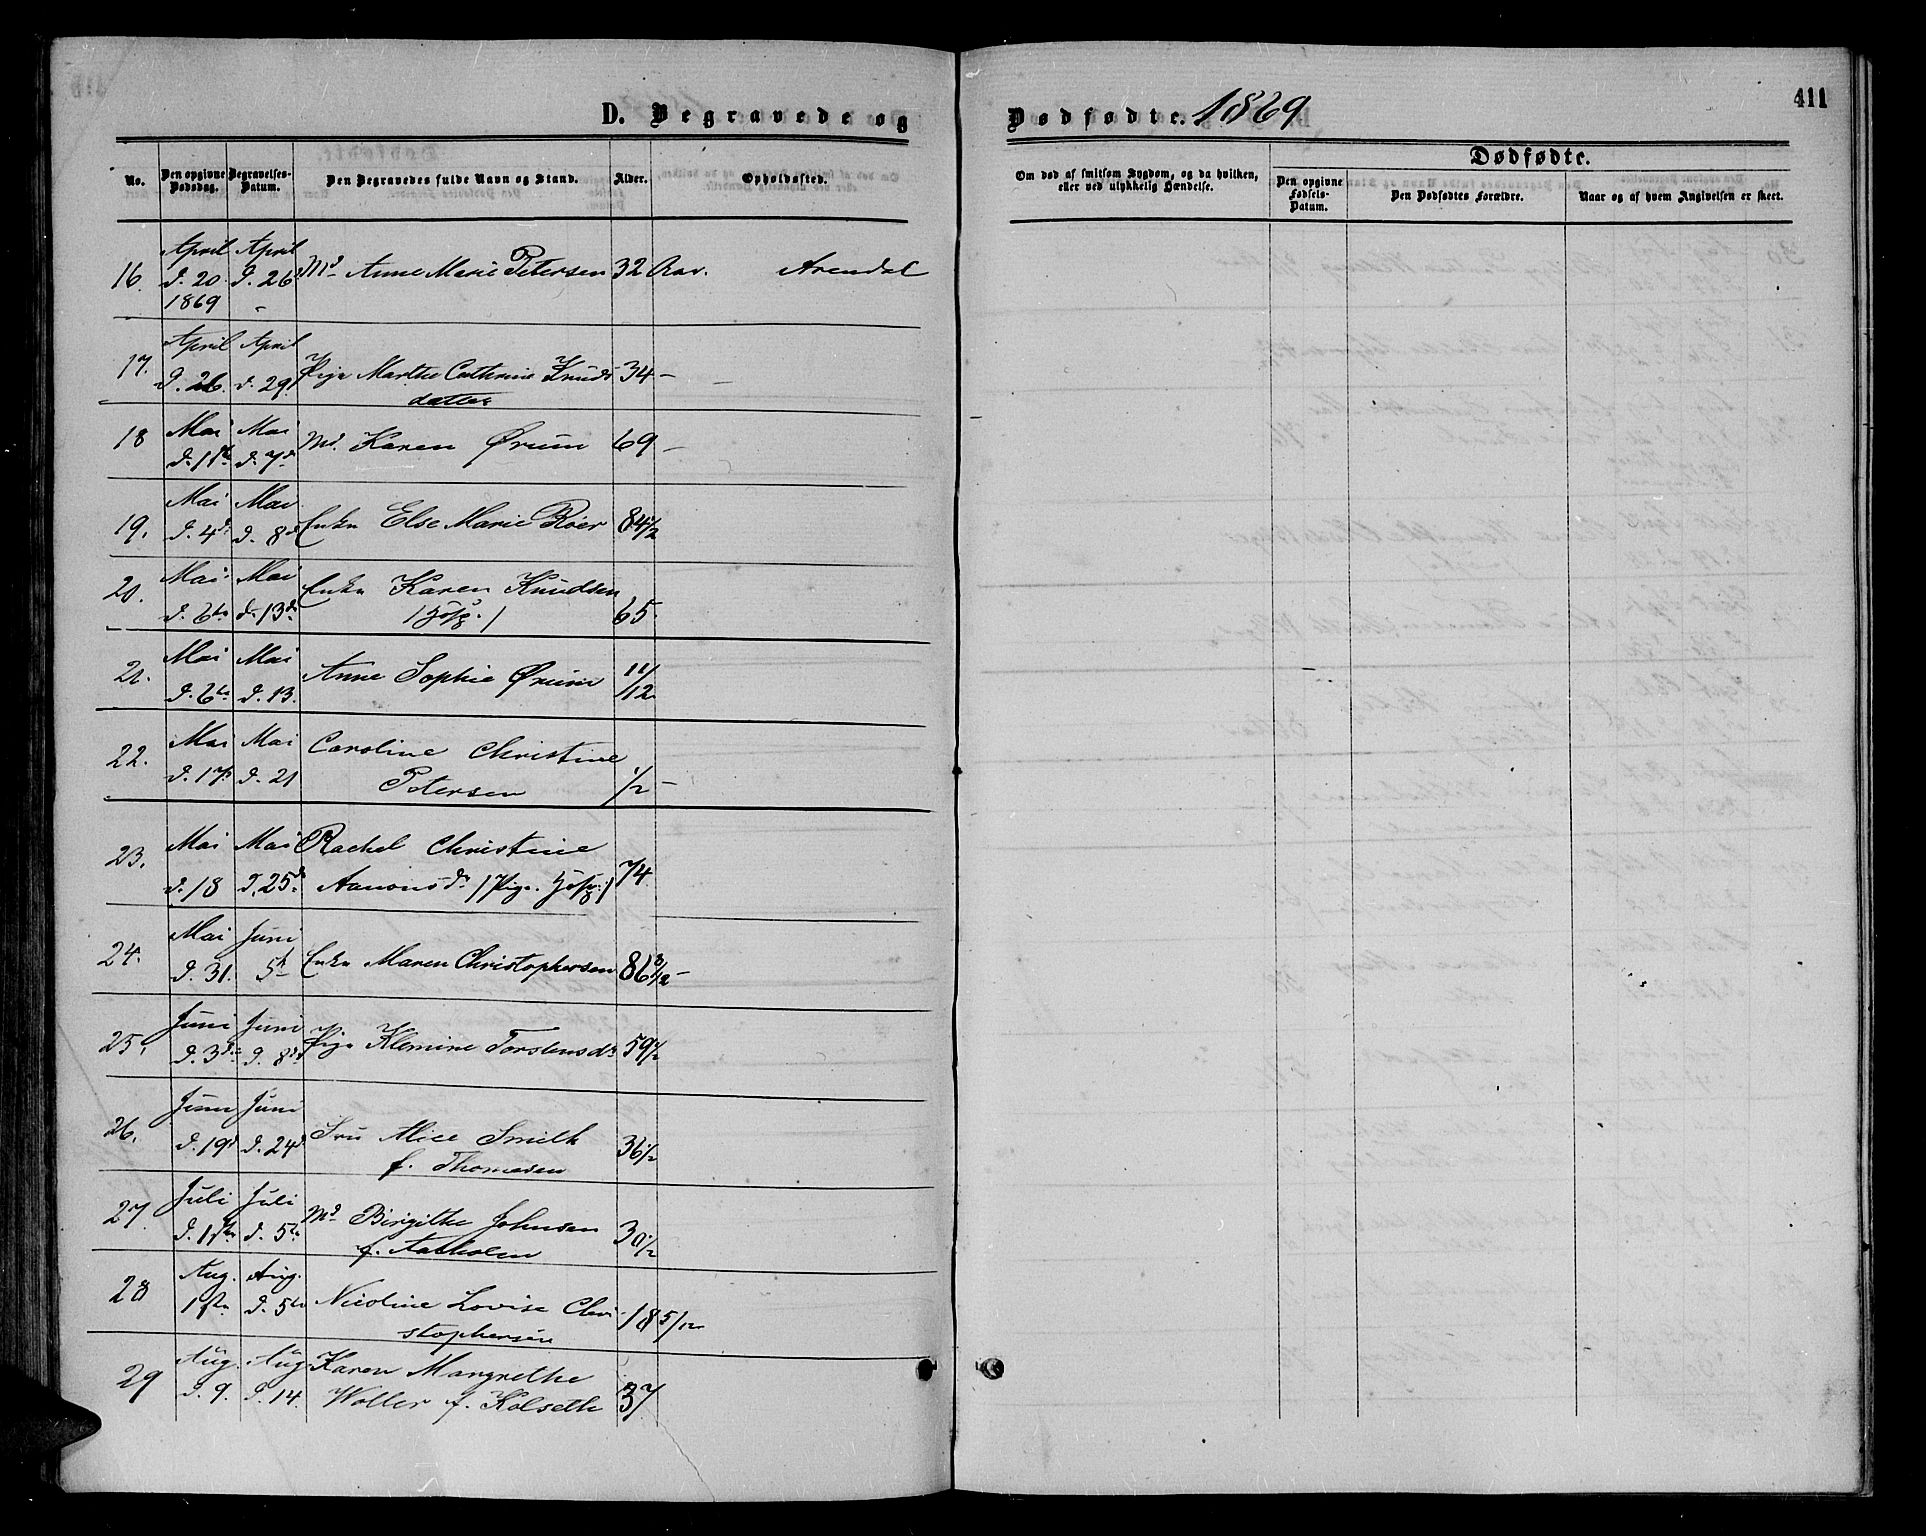 D. Begravede og
Dødfødte. 1869
411
No.
Den opgivne Dødsdag.
Begravelses-Datum.
Den Begravedes fulde Navn og Stand.
Alder.
Opholdssted.
Om død af smitsom Sygdom, og da hvilken, eller ved ulykkelig Hændelse.
Dødfødte.
Den opgivne Fødsels-Datum.
Den Dødfødtes Forældre.
Naar og af hvem Angivelsen er skeet.
16. April d. 20. 1869 April d. 26 Md Anne Marie Petersen 32 Aar. Arendal
17. April d. 26. April d. 29. Pige Marthe Cathrine Knuds
datter 34 –
18 Mai d. 1ste Mai d. 7d Md. Karen Ørum 69 –
19. Mai d. 4d Mai d. 8d Enke Else Marie Röer 84 1/2
20. Mai d. 6te Mai d. 13d Enke Karen Knudsen
65
21. Mai d. 6te Mai d. 13. Anne Sophie Ørum 11/12
22. Mai d. 17. Mai d. 21 Caroline Christine
Petersen 1/2 –
23. Mai d. 18 Mai d. 25d Rachel Christine
Aanonsdr 74
24. Mai d. 31. Juni 5te Enke Maren Christophersen 86 3/12 –
25. Juni d. 3d Juni d. 8d Pige Klemine Torstensdr 59 1/2
26. Juni d. 19d Juni d. 24d Fru Alice Smith
f. Thomesen 36 1/2
27. Juli d. 1ste Juli d. 5te Md Birgithe Johnsen
f. 30 1/2
28 Aug. 1ste Aug. d. 5te Nicoline Lovise Chri
stophersen 18 5/12
29 Aug. d. 9. Aug d. 14. Karen Margrethe
Woller f. Kolseth 37